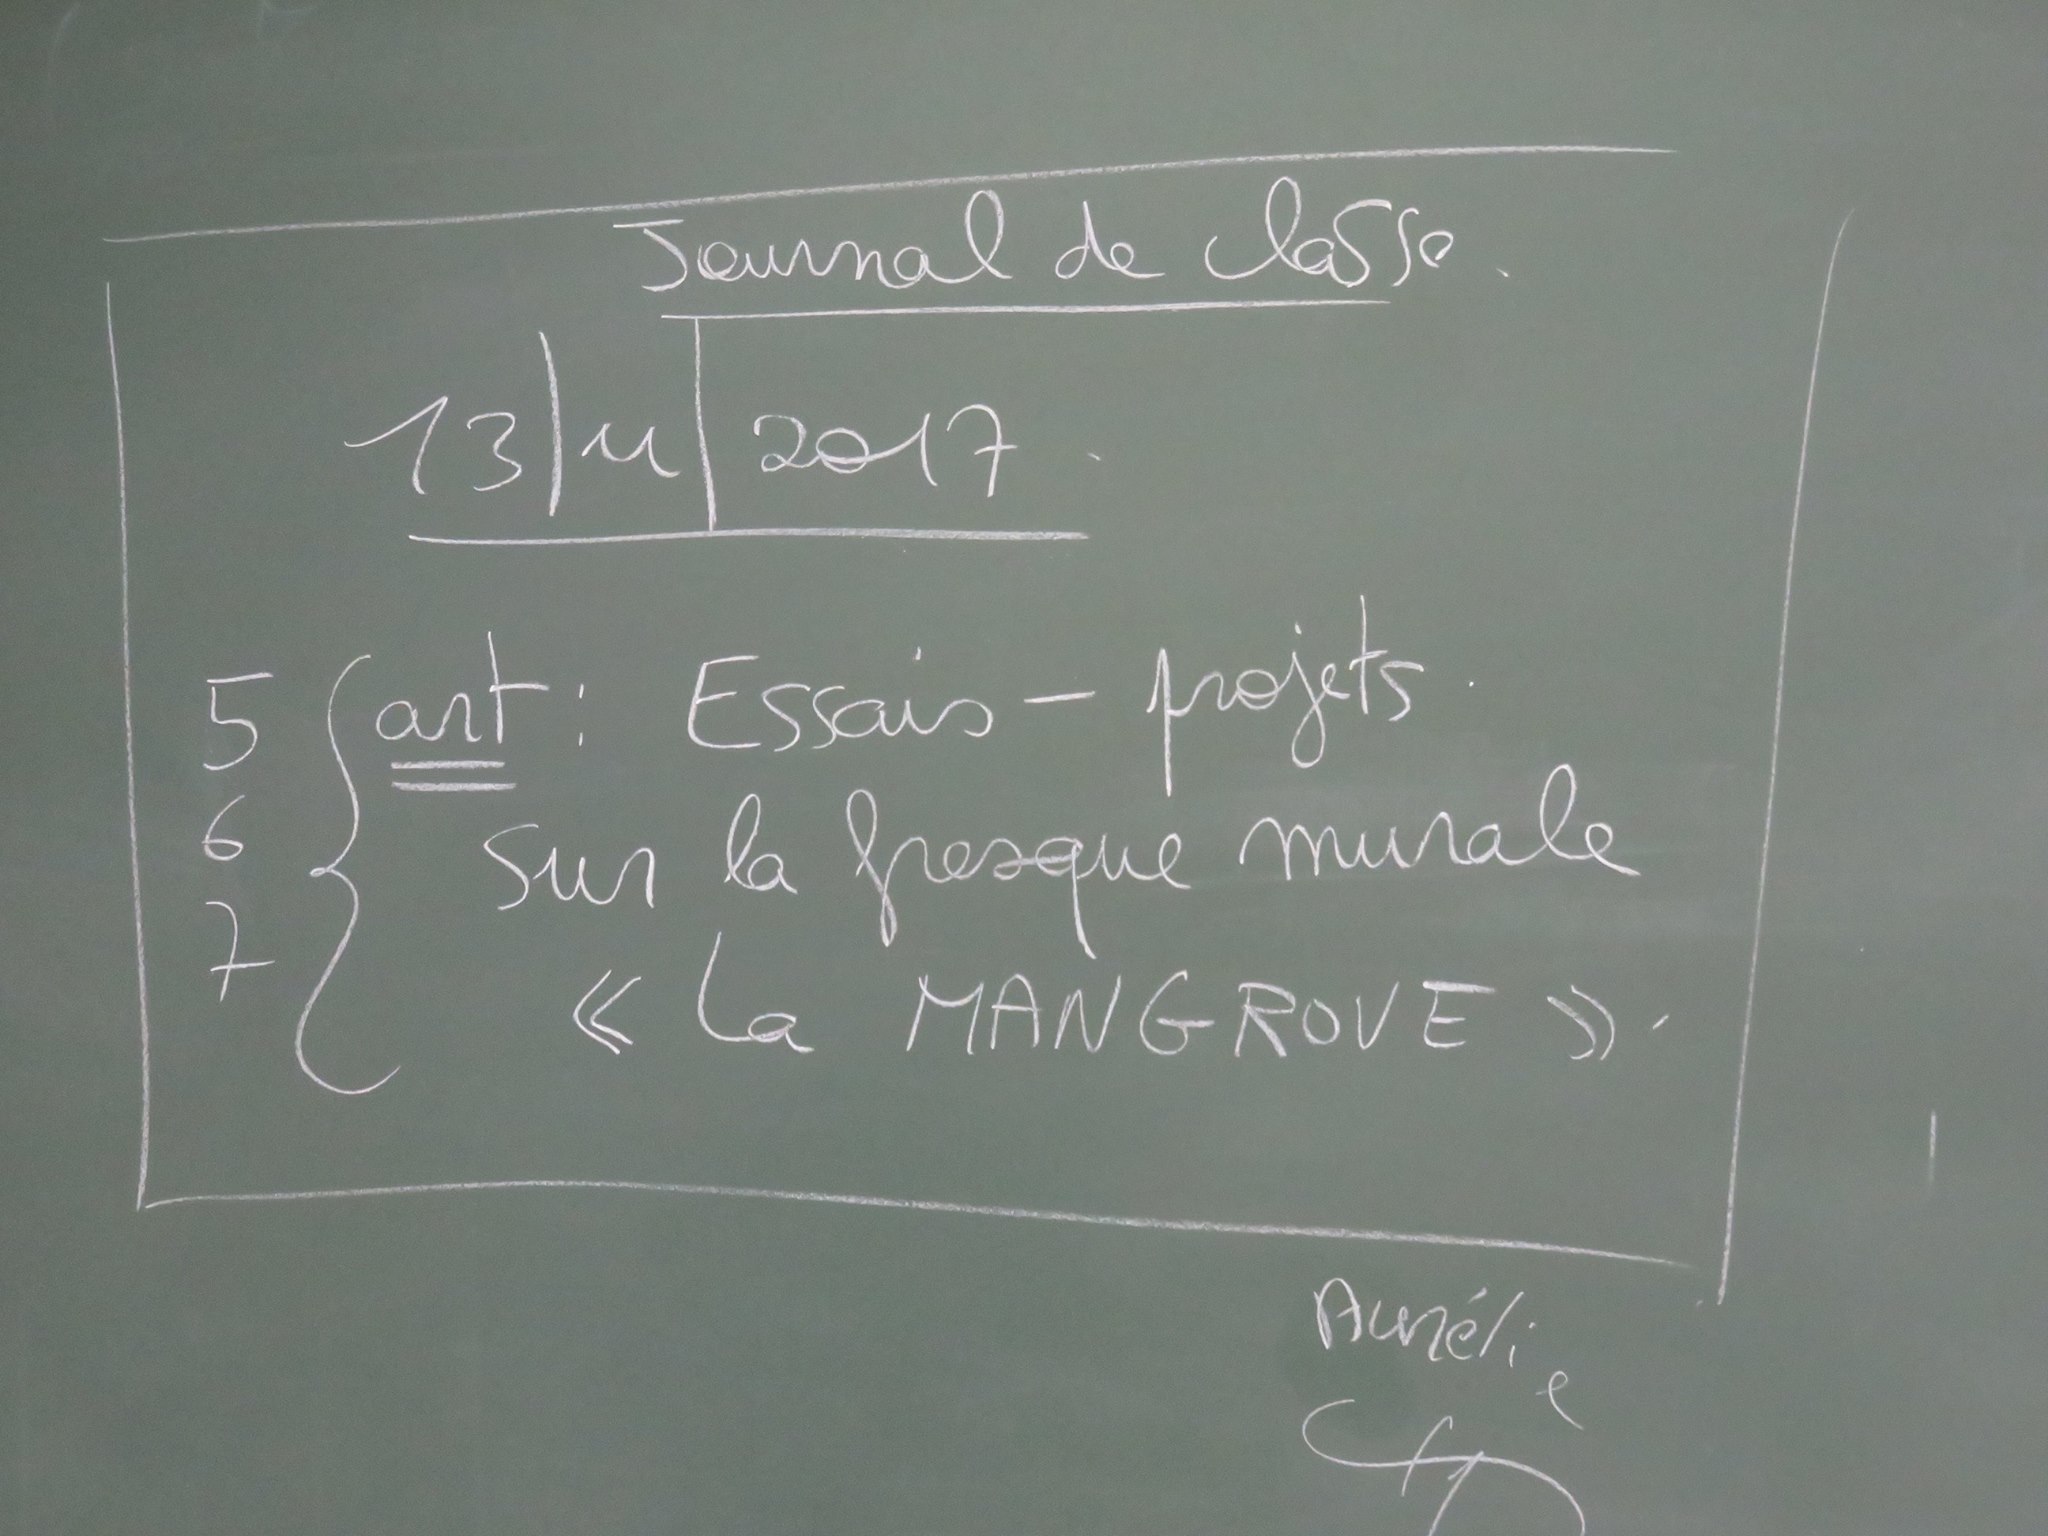 Journal de classe.
13/11/2017.
5 art : Essais - projets.
6 sur la fresque murale
7 « La MANGROVE ».
Aurélie